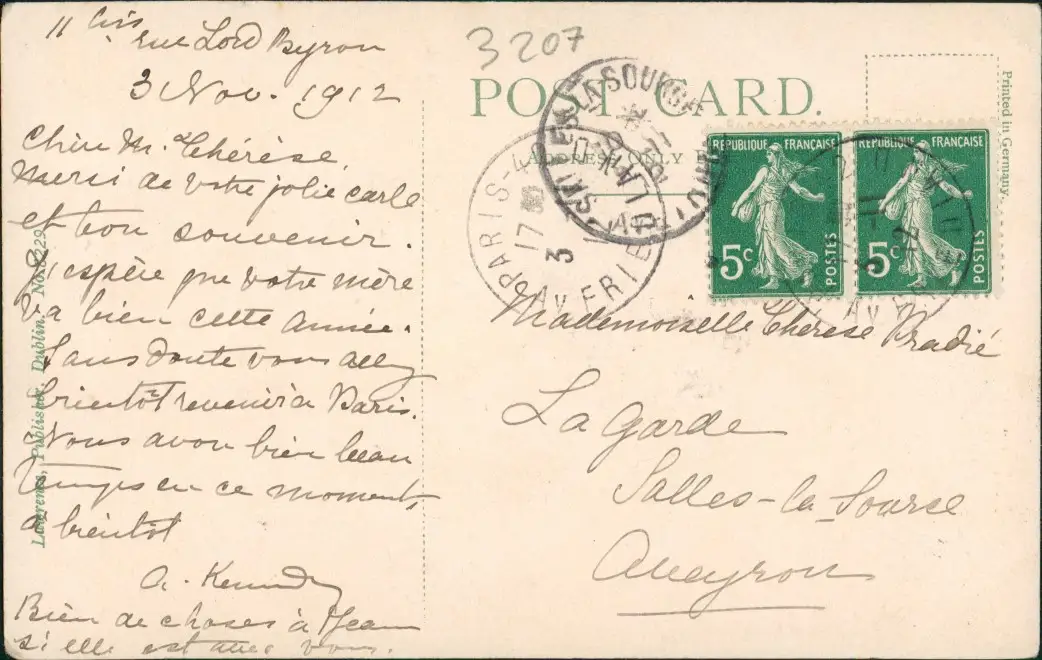 11 bis
rue Lord Byron
3 Nov. 1912
Chère M. Thérèse,
Merci de votre jolie carte
et bon souvenir.
J'espère que votre mère
va bien cette année.
Sans doute vous allez
bientôt revenir à Paris.
Nous avon bien beau
temps en ce moment,
à bientôt
A. Kennedy
Bien de choses à
si elle est avec vous.
Lawrence, Publisher, Dublin. No.
3207
POST CARD.
ADDRESS ONLY
Printed in Germany.
RÉPUBLIQUE FRANÇAISE
5c
POSTES
RÉPUBLIQUE FRANÇAISE
5c
POSTES
PARIS
17
3
AV
LA SOURCE
Mademoiselle Thérèse Pradié
La Garde
Salles-la-Source
Aveyron